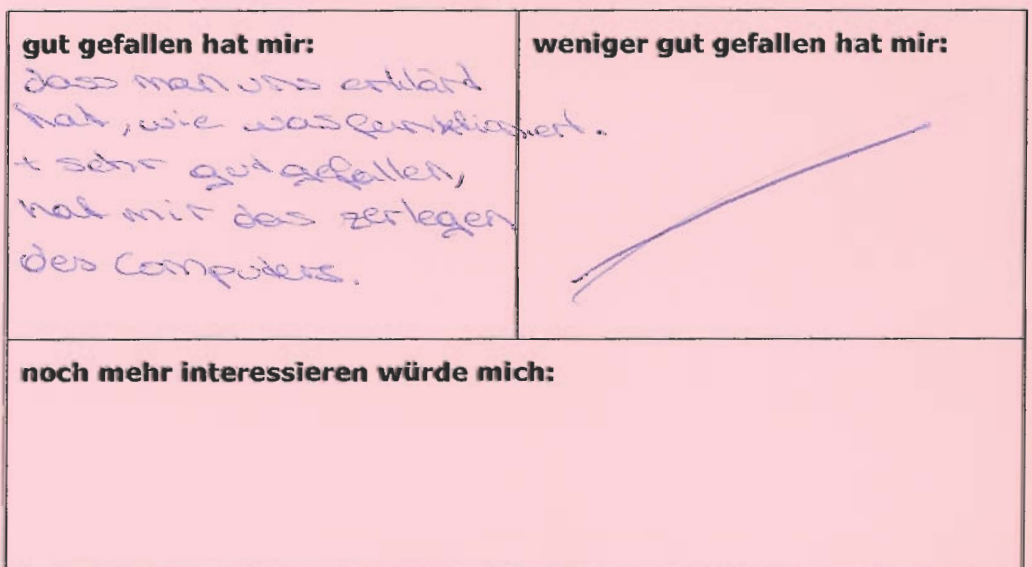 gut gefallen hat mir:
dass man uns erklärt
hat, wie was funktioniert.
+ sehr gut gefallen,
hat mir das zerlegen
des Computers.
weniger gut gefallen hat mir:
noch mehr interessieren würde mich: